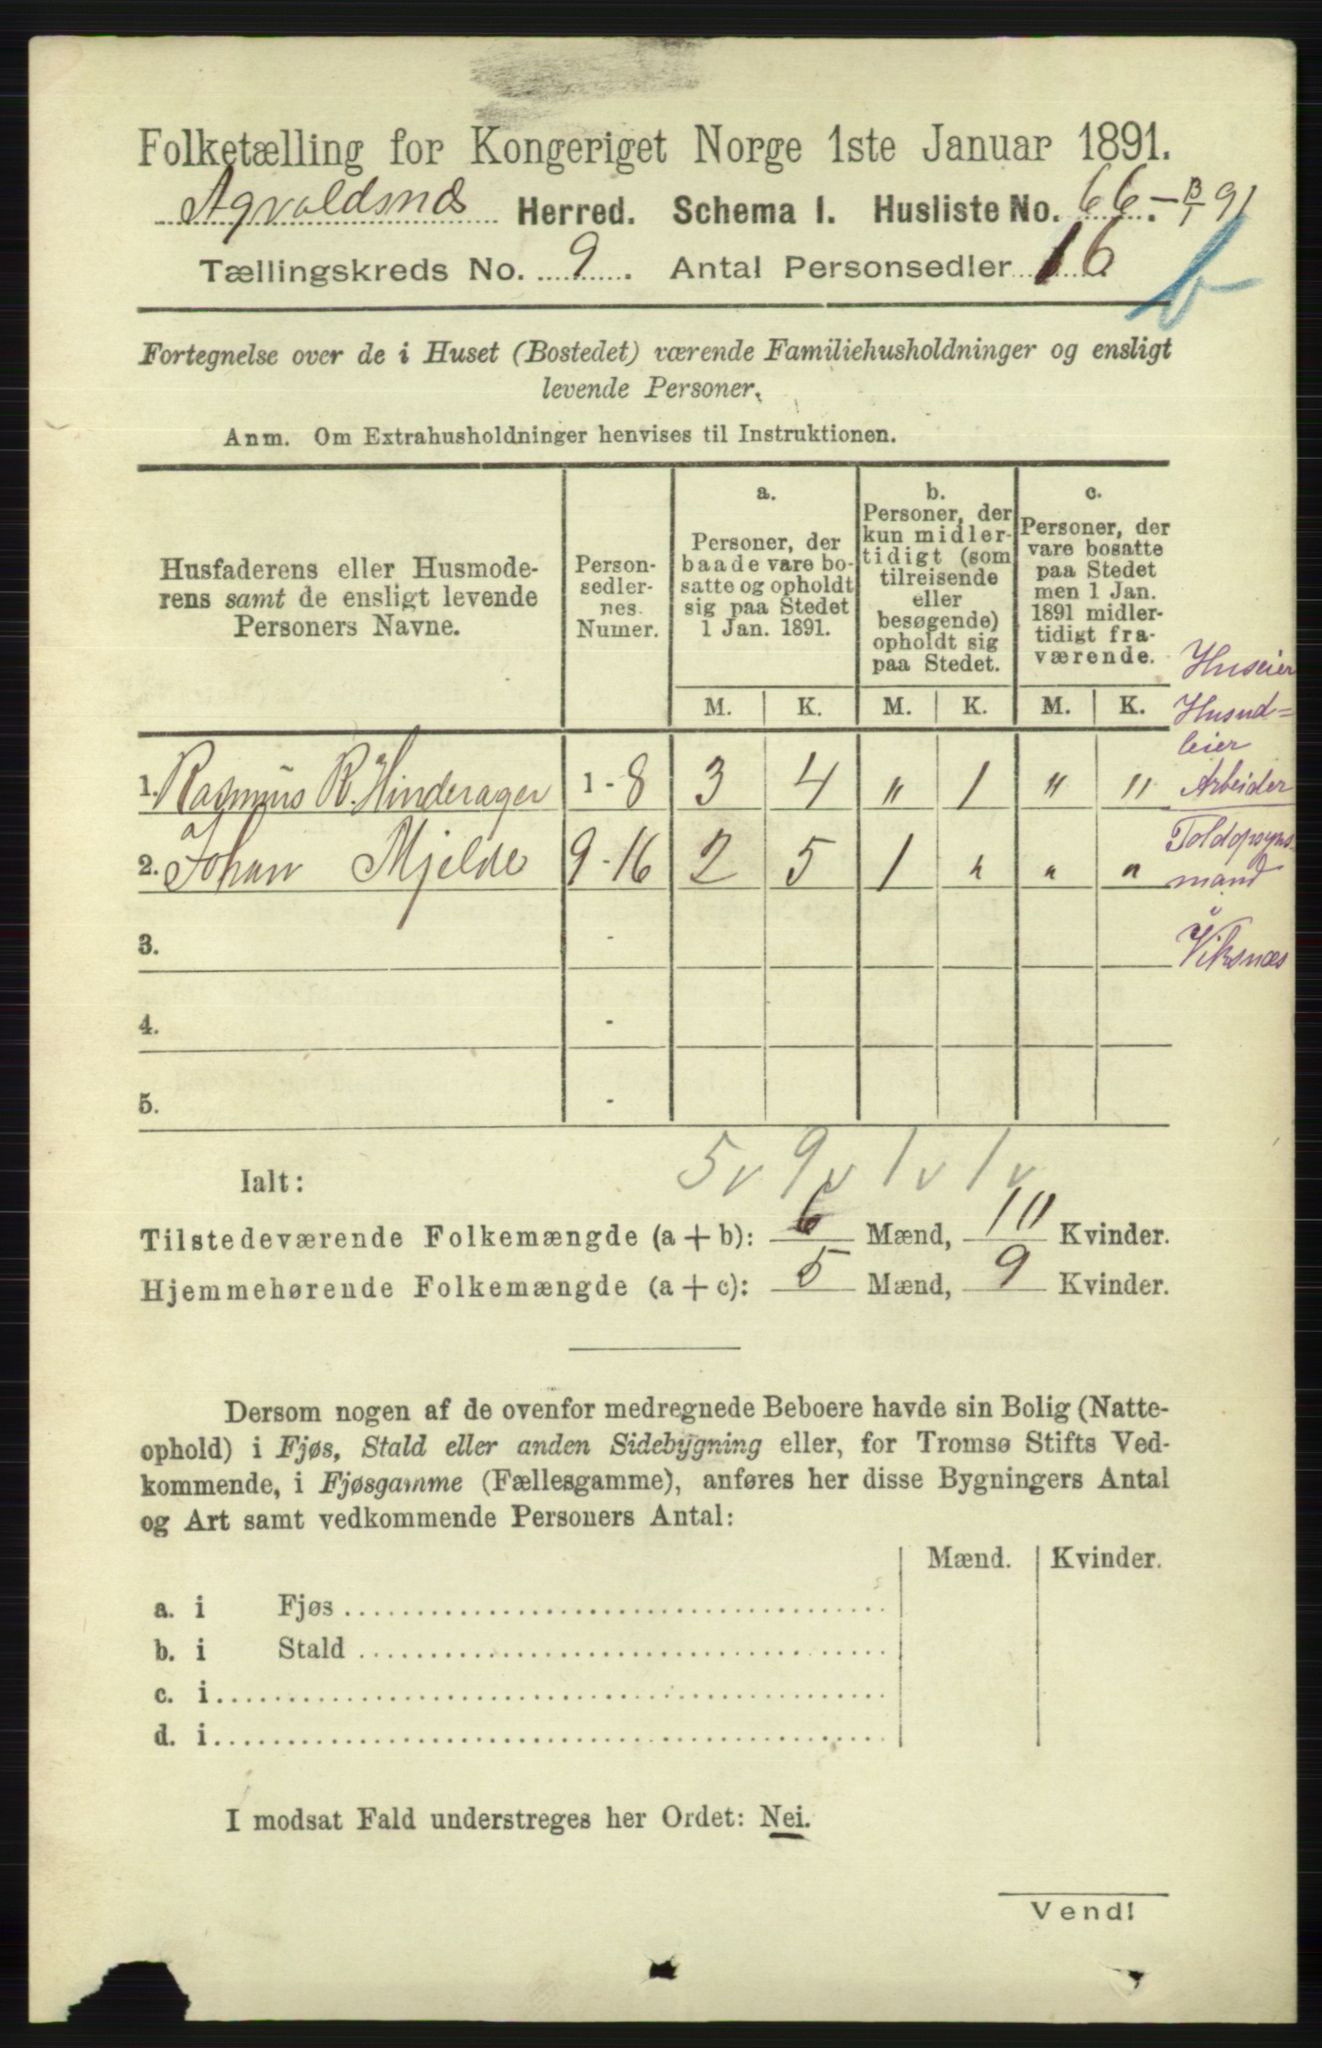 Folketælling for Kongeriget Norge 1ste Januar 1891.
Agvaldsnæs Herred. Schema 1. Husliste No. 66.
Tællingskreds No. 9. Antal Personsedler 16
b
Fortegnelse over de i Huset (Bostedet) værende Familiehusholdninger og ensligt
levende Personer.
Anm. Om Extrahusholdninger henvises til Instruktionen.
Husfaderens eller Husmode-
rens samt de ensligt levende
Personers Navne.
Person-
sedler-
nes
Numer.
a.
Personer, der
baade vare bo-
satte og opholdt
sig paa Stedet
1 Jan. 1891.
b.
Personer, der
kun midler-
tidigt (som
tilreisende
eller
besøgende)
opholdt sig
paa Stedet.
c.
Personer, der
vare bosatte
paa Stedet
men 1 Jan.
1891 midler-
tidigt fra-
værende.
M. K. M. K. M. K.
Huseier
Husud=
leier
Arbeider
1. Rasmus R. Hinderager 1-8 3 4 " 1 " "
2. Johan Mjelde 9-16 2 5 1 " " "
Toldopsyns-
mand
i
Viksnæs
3. -
4. -
5. -
5 v 9 v 1 v 1 v
Ialt:
Tilstedeværende Folkemængde (a + b): 6 Mænd, 10 Kvinder.
Hjemmehørende Folkemængde (a + c): 5 Mænd, 9 Kvinder.
Dersom nogen af de ovenfor medregnede Beboere havde sin Bolig (Natte-
ophold) i Fjøs, Stald eller anden Sidebygning eller, for Tromsø Stifts Ved-
kommende, i Fjøsgamme (Fællesgamme), anføres her disse Bygningers Antal
og Art samt vedkommende Personers Antal:
Mænd. Kvinder.
a. i Fjøs
b. i Stald
c. i
d. i
I modsat Fald understreges her Ordet: Nei.
Vend!